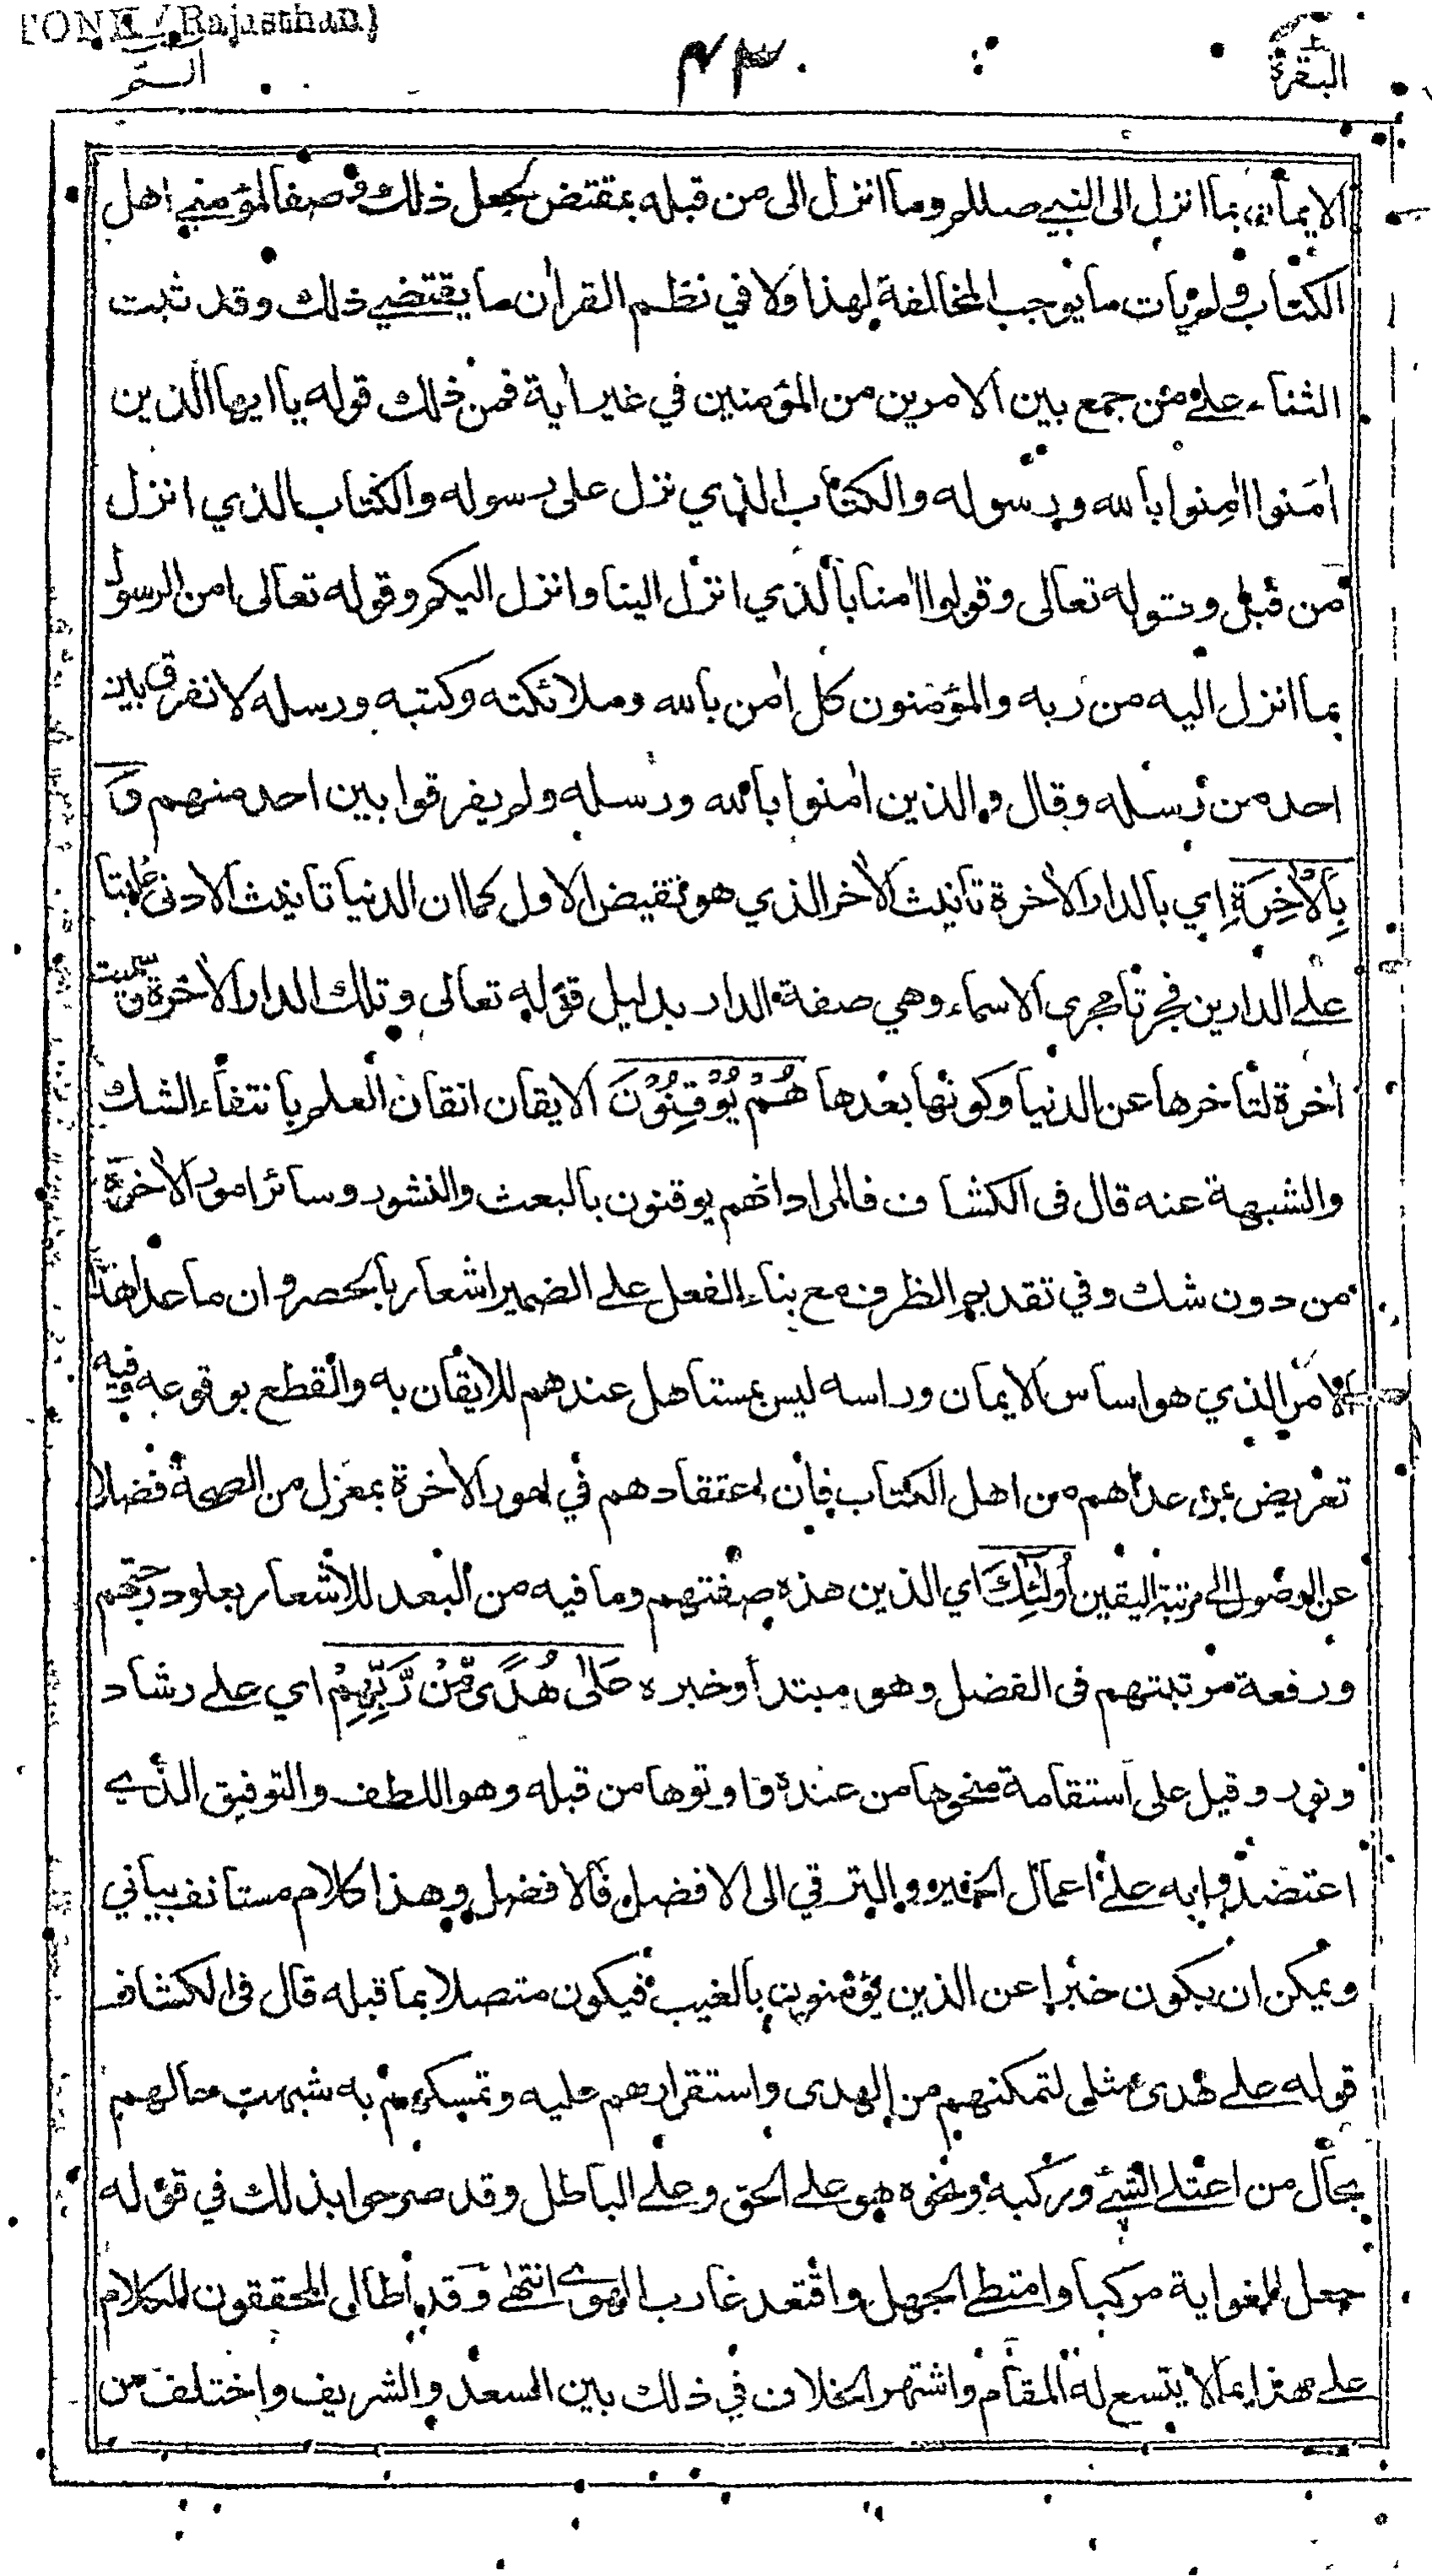 TONK (Rajasthan)
البقرة
٤٣
الـــم
الايمان بما انزل الى النبي صللم وما انزل الى من قبله بمقتض لجعل ذلك وصفا لمؤمني اهل
الكتاب ولم يات ما يوجب المخالفة لهذا ولا في نظم القرآن ما يقتضي ذلك وقد ثبت
الثناء على من جمع بين الامرين من المؤمنين في غير اٰية فمن ذلك قوله يا ايها الذين
اٰمَنوا اٰمِنوا بالله ورسوله والكتاب الذي نزل على رسوله والكتاب الذي انزل
من قبل وقوله تعالى وقولوا اٰمنا بالذي انزل الينا وانزل اليكم وقوله تعالى اٰمن الرسول
بما انزل اليه من ربه والمؤمنون كل اٰمن بالله وملائكته وكتبه ورسله لا نفرق بين
احد من رسله وقال والذين اٰمنوا بالله ورسله ولم يفرقوا بين احد منهم وَ
بِالْاٰخِرَةِ اي بالدار الاٰخرة تانيث الاٰخر الذي هو نقيض الاول كما ان الدنيا تانيث الادنى غلبتا
على الدارين فجرتا مجرى الاسماء وهي صفة الدار بدليل قوله تعالى وتلك الدار الاٰخرة سميت
اٰخرة لتاخرها عن الدنيا وكونها بعدها هُمْ يُوْقِنُوْنَ الايقان اتقان العلم بانتفاء الشك
والشبهة عنه قال فى الكشاف فالمراد انهم يوقنون بالبعث والنشور وسائر امور الاٰخرة
من دون شك وفي تقديم الظرف مع بناء الفعل على الضمير اشعار بالحصر وان ما عدا هذا
الامر الذي هو اساس الايمان وراسه ليس بمستاهل عندهم للايقان به والقطع بوقوعه وفيه
تعريض بمن عداهم من اهل الكتاب فان اعتقادهم في امور الاٰخرة بمعزل من الصحة فضلا
عن الوصول الى مرتبة اليقين اُولٰٓئِكَ اي الذين هذه صفتهم وما فيه من البعد للاشعار بعلو درجتهم
ورفعة مرتبتهم فى الفضل وهو مبتدأ وخبره عَلٰى هُدًى مِّنْ رَّبِّهِمْ اي على رشاد
ونور وقيل على استقامة منحوها من عنده واوتوها من قبله وهو اللطف والتوفيق الذي
اعتضدوا به على اعمال الخير والترقي الى الافضل فالافضل وهذا كلام مستانف بياني
ويمكن ان يكون خبرا عن الذين يؤمنون بالغيب فيكون متصلا بما قبله قال فى الكشاف
قوله على هدى مثل لتمكنهم من الهدى واستقرارهم عليه وتمسكهم به شبهت حالهم
بحال من اعتلى الشئ وركبه ونحوه هو على الحق وعلى الباطل وقد صرحوا بذلك في قوله
جعل الغواية مركبا وامتطى الجهل واقتعد غارب الهوى انتهٰى وقد اطال المحققون الكلام
على هذا بما لا يتسع له المقام واشتهر الخلاف في ذلك بين السعد والشريف واختلف من